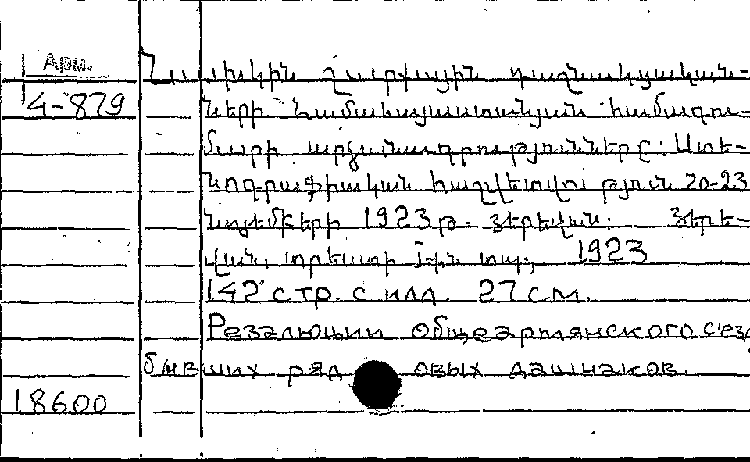 Арм.
4-879
Նախկին շարքային դաշնակցական-
ների համահայաստանյան համագու-
մարի արձանագրությունները: Ստե-
նոգրաֆիական հաշվետվություն 20-23
նոյեմբերի 1923թ. Երևան. Երե-
վան, պետհրատ 1-ին տպ., 1923
142 стр. с илл. 27 см.
Резолюции общеармянского съез
бывших рядовых дашнаков.
18600